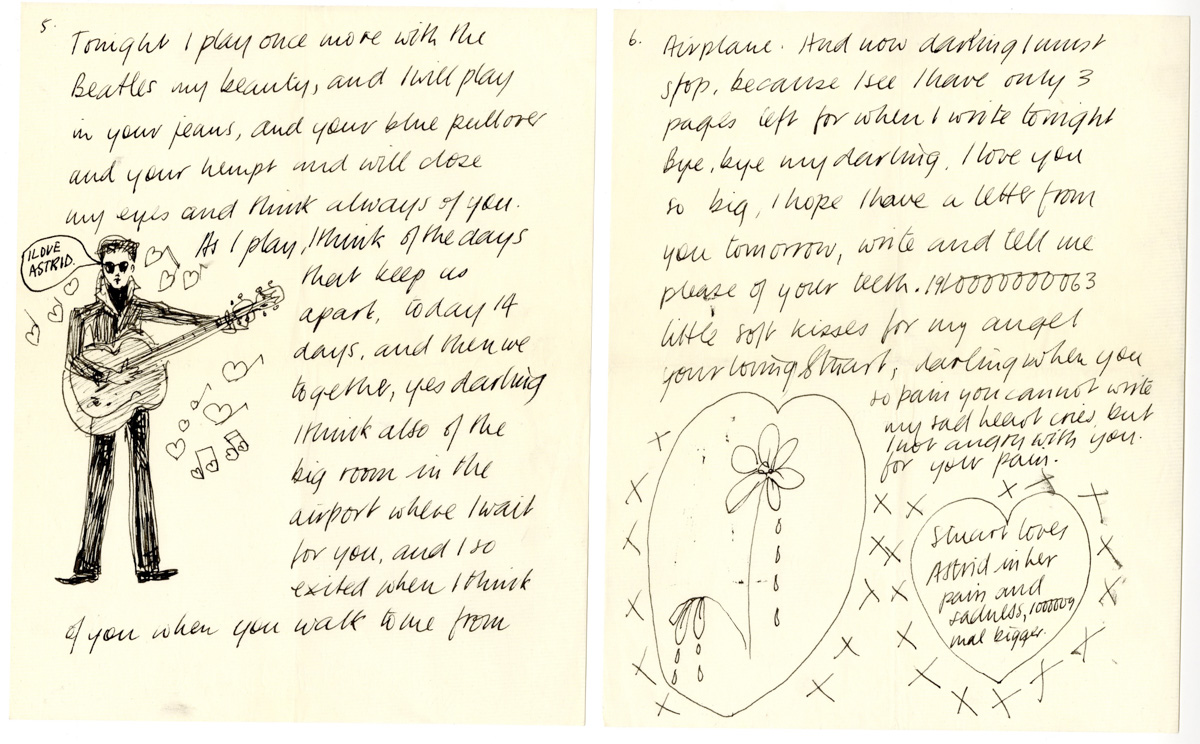 5.
Tonight I play once more with the
Beatles my beauty, and I will play
in your jeans, and your blue pullover
and your hempt and will close
my eyes and think always of you.
I LOVE
ASTRID.
As I play, I think of the days
that keep us
apart, today 14
days, and then we
together, yes darling
I think also of the
big room in the
airport where I wait
for you, and I so
exited when I think
of you when you walk to me from
6.
Airplane. And now darling I must
stop, because I see I have only 3
pages left for when I write tonight
Bye, bye my darling, I love you
so big, I hope I have a letter from
you tomorrow, write and tell me
please of your teeth.
little soft kisses for my angel
your loving Stuart, darling when you
so pain you cannot write
my sad heart cries, but
I not angry with you.
for your pain.
Stuart loves
Astrid in her
pain and
sadness,
mal bigger.